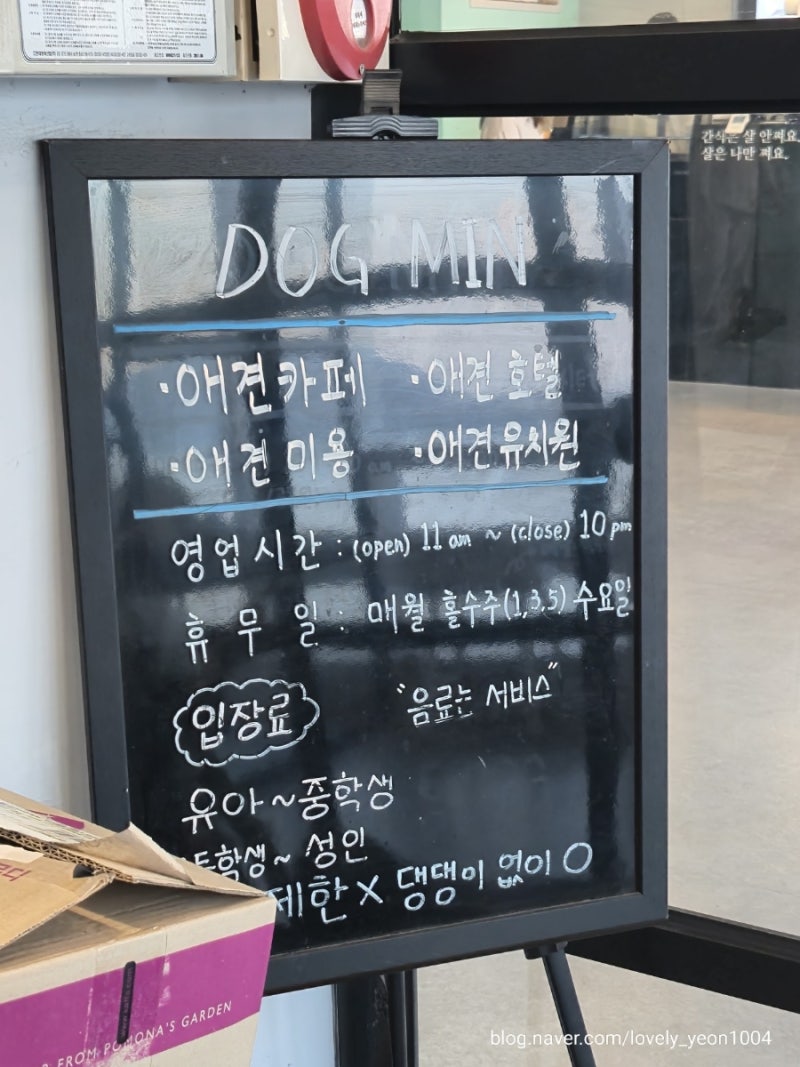 간식은 살 안쪄요.
살은 나만 쪄요.
DOG "MIN"
·애견카페 ·애견호텔
·애견미용 ·애견유치원
영업시간 : (open) 11 am ~ (close) 10 pm
휴무일 : 매월 홀수주(1,3,5) 수요일
입장료 "음료는 서비스"
유아~중학생
등학생~ 성인
제한 X 댕댕이 없이 O
FROM POMONA'S GARDEN
blog.naver.com/lovely_yeon1004